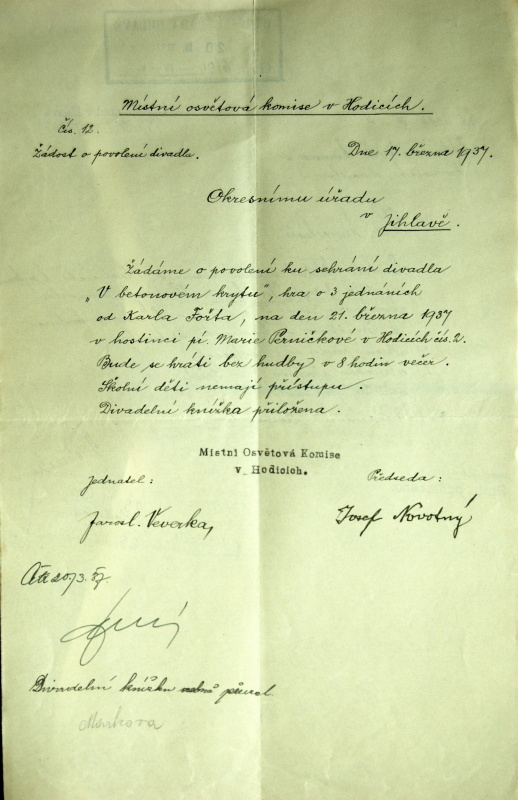 Místní osvětová komise v Hodicích.
Čís. 12.
Žádost o povolení divadla.
Dne 17. března 1937.
Okresnímu úřadu
v Jihlavě.
Žádáme o povolení ku sehrání divadla
„V betonovém krytu", hra o 3 jednáních
od Karla Fořta, na den 21. března 1937
v hostinci pí. Marie Perničkové v Hodicích čís. 2.
Bude se hráti bez hudby v 8 hodin večer.
Školní děti nemají přístupu.
Divadelní knížka přiložena.
Místní Osvětová Komise
v Hodicích.
Jednatel:
Předseda:
Jarosl. Veverka,
Josef Novotný
20/3. 37.
Divadelní knížku
Markova